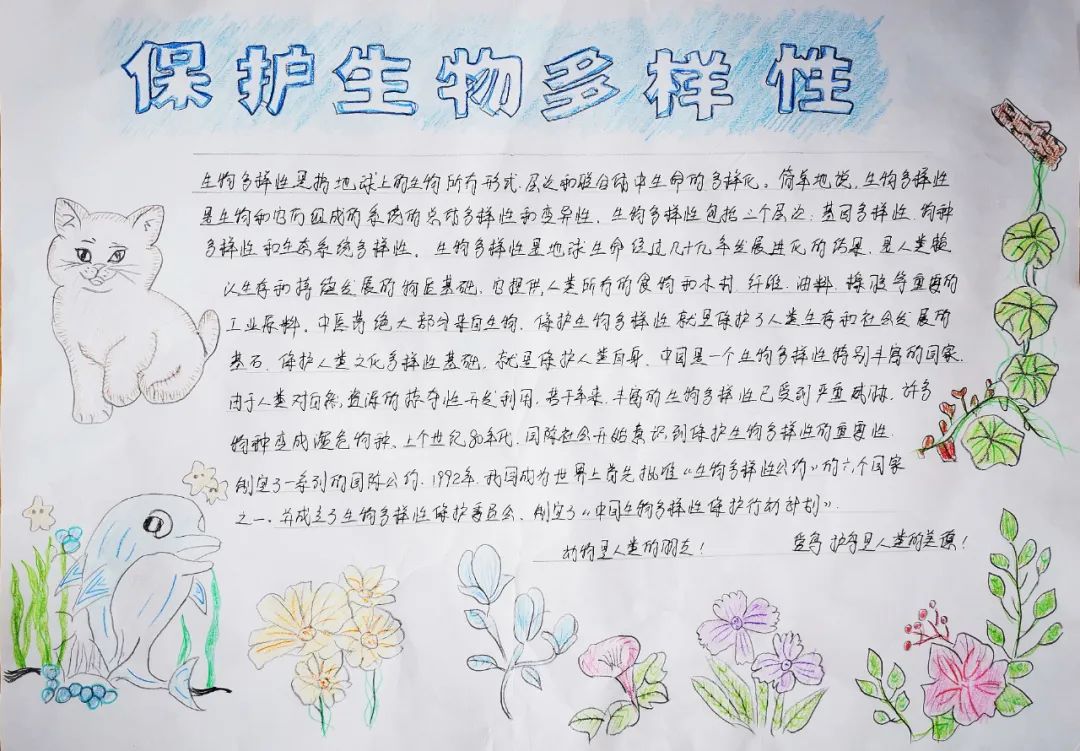 保护生物多样性
生物多样性是指地球上的生物所有形式、层次和联合体中生命的多样化。简单地说,生物多样性
是生物和它们组成的系统的总体多样性和变异性。生物多样性包括三个层次:基因多样性、物种
多样性和生态系统多样性。生物多样性是地球生命经过几十亿年发展进化的结果,是人类赖
以生存和持续发展的物质基础。它提供人类所有的食物和木材、纤维、油料、橡胶等重要的
工业原料。中医药绝大部分来自生物,保护生物多样性就是保护了人类生存和社会发展的
基石,保护人类文化多样性基础,就是保护人类自身。中国是一个生物多样性特别丰富的国家.
由于人类对自然资源的掠夺性开发利用,若干年来,丰富的生物多样性已受到严重威胁,许多
物种变成濒危物种。上个世纪80年代,国际社会开始意识到保护生物多样性的重要性.
制定了一系列的国际公约.1992年,我国成为世界上首先批准《生物多样性公约》的六个国家
之一。并成立了生物多样性保护委员会,制定了《中国生物多样性保护行动计划》.
动物是人类的朋友! 爱鸟 护鸟是人类的美德!